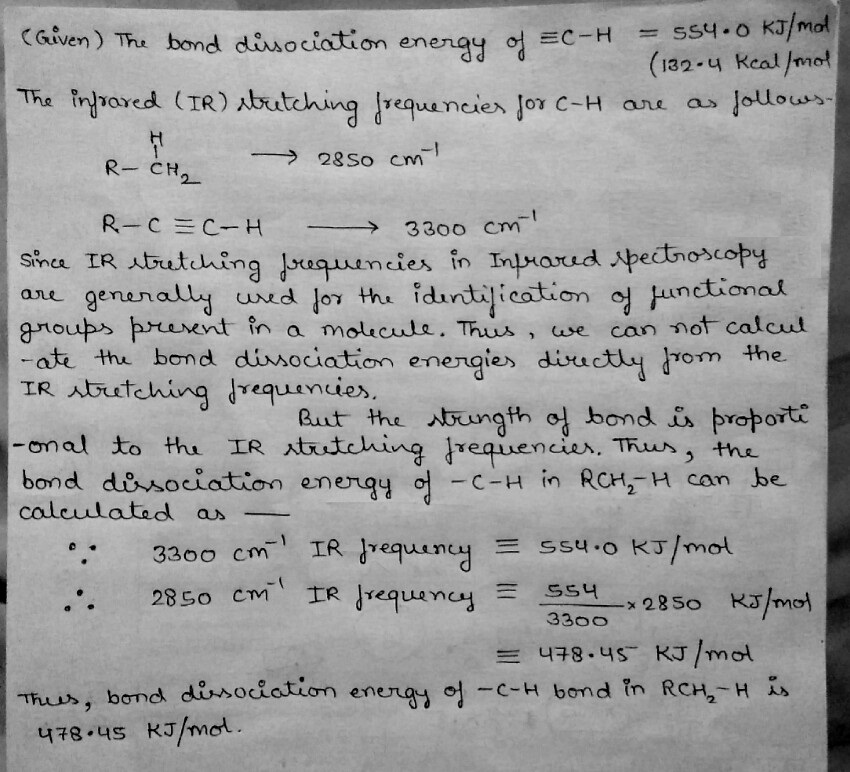 (Given) The bond dissociation energy of ≡C-H = 554.0 KJ/mol
(132.4 Kcal/mol
The infrared (IR) stretching frequencies for C-H are as follows-
H
R- CH₂ → 2850 cm⁻¹
R-C≡C-H → 3300 cm⁻¹
Since IR stretching frequencies in Infrared spectroscopy
are generally used for the identification of functional
groups present in a molecule. Thus, we can not calcul
-ate the bond dissociation energies directly from the
IR stretching frequencies.
But the strength of bond is proporti
-onal to the IR stretching frequencies. Thus, the
bond dissociation energy of -C-H in RCH₂-H can be
calculated as —
∵ 3300 cm⁻¹ IR frequency ≡ 554.0 KJ/mol
∴ 2850 cm⁻¹ IR frequency ≡ 554/3300 × 2850 KJ/mol
≡ 478.45 KJ/mol
Thus, bond dissociation energy of -C-H bond in RCH₂-H is
478.45 KJ/mol.